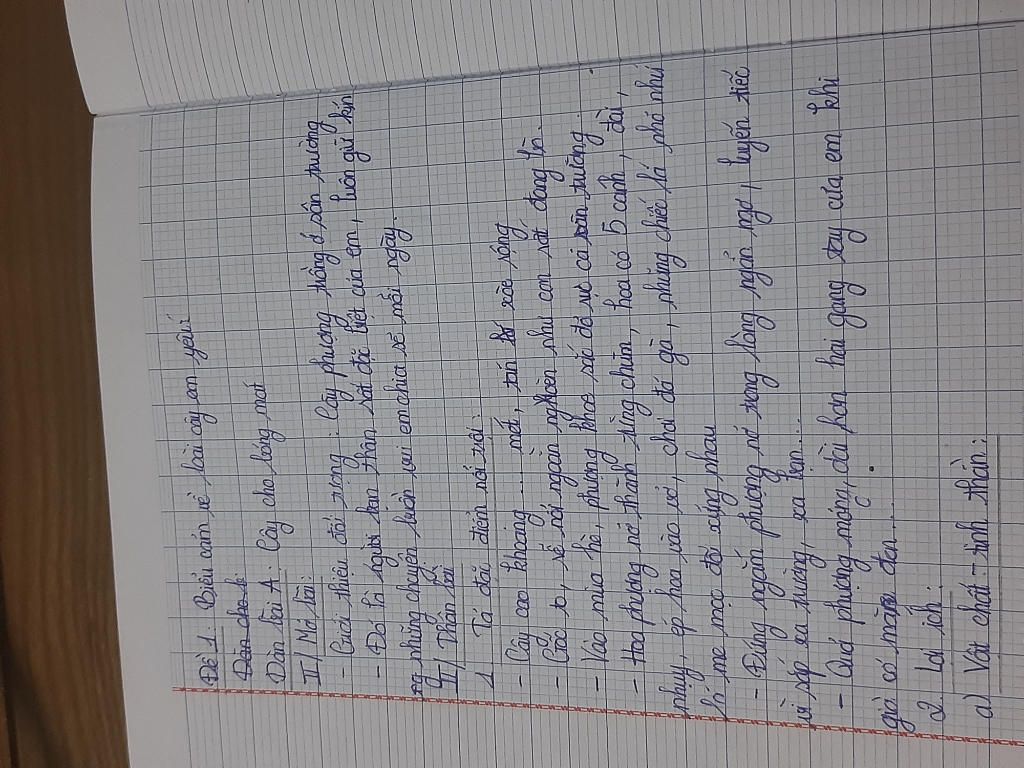 Đề 1: Biểu cảm về loài cây em yêu
Dàn cho b
Dàn bài A: Cây cho bóng mát
I/ Mở bài
- Giới thiệu đối tượng: Cây phượng trồng ở sân trường
- Đó là người bạn thân rất đặc biệt của em, luôn giữ kín
những chuyện buồn vui em chia sẻ mỗi ngày.
II/ Thân bài
1. Tả đặc điểm nổi trội:
- Cây cao khoảng .... mét, tán lá xòe rộng
- Gốc to, rễ nổi ngoằn nghoèn như con rắt đang bò.
- Vào mùa hè, phượng khoe sắc đỏ rực cả sân trường.
- Hoa phượng nở thành từng chùm, hoa có 5 cánh, đài,
nhụy, ép hoa vào vở, chơi đá gà, những chiếc lá nhỏ như
lá me mọc đối xứng nhau
- Đứng ngắm phượng nở trong lòng ngẩn ngơ, luyến tiếc
vì sắp xa trường, xa bạn...
- Quả phượng mỏng, dài hơn hai gang tay của em khi
già có màu đen...
2. Lợi ích:
a) Vật chất - tinh thần: